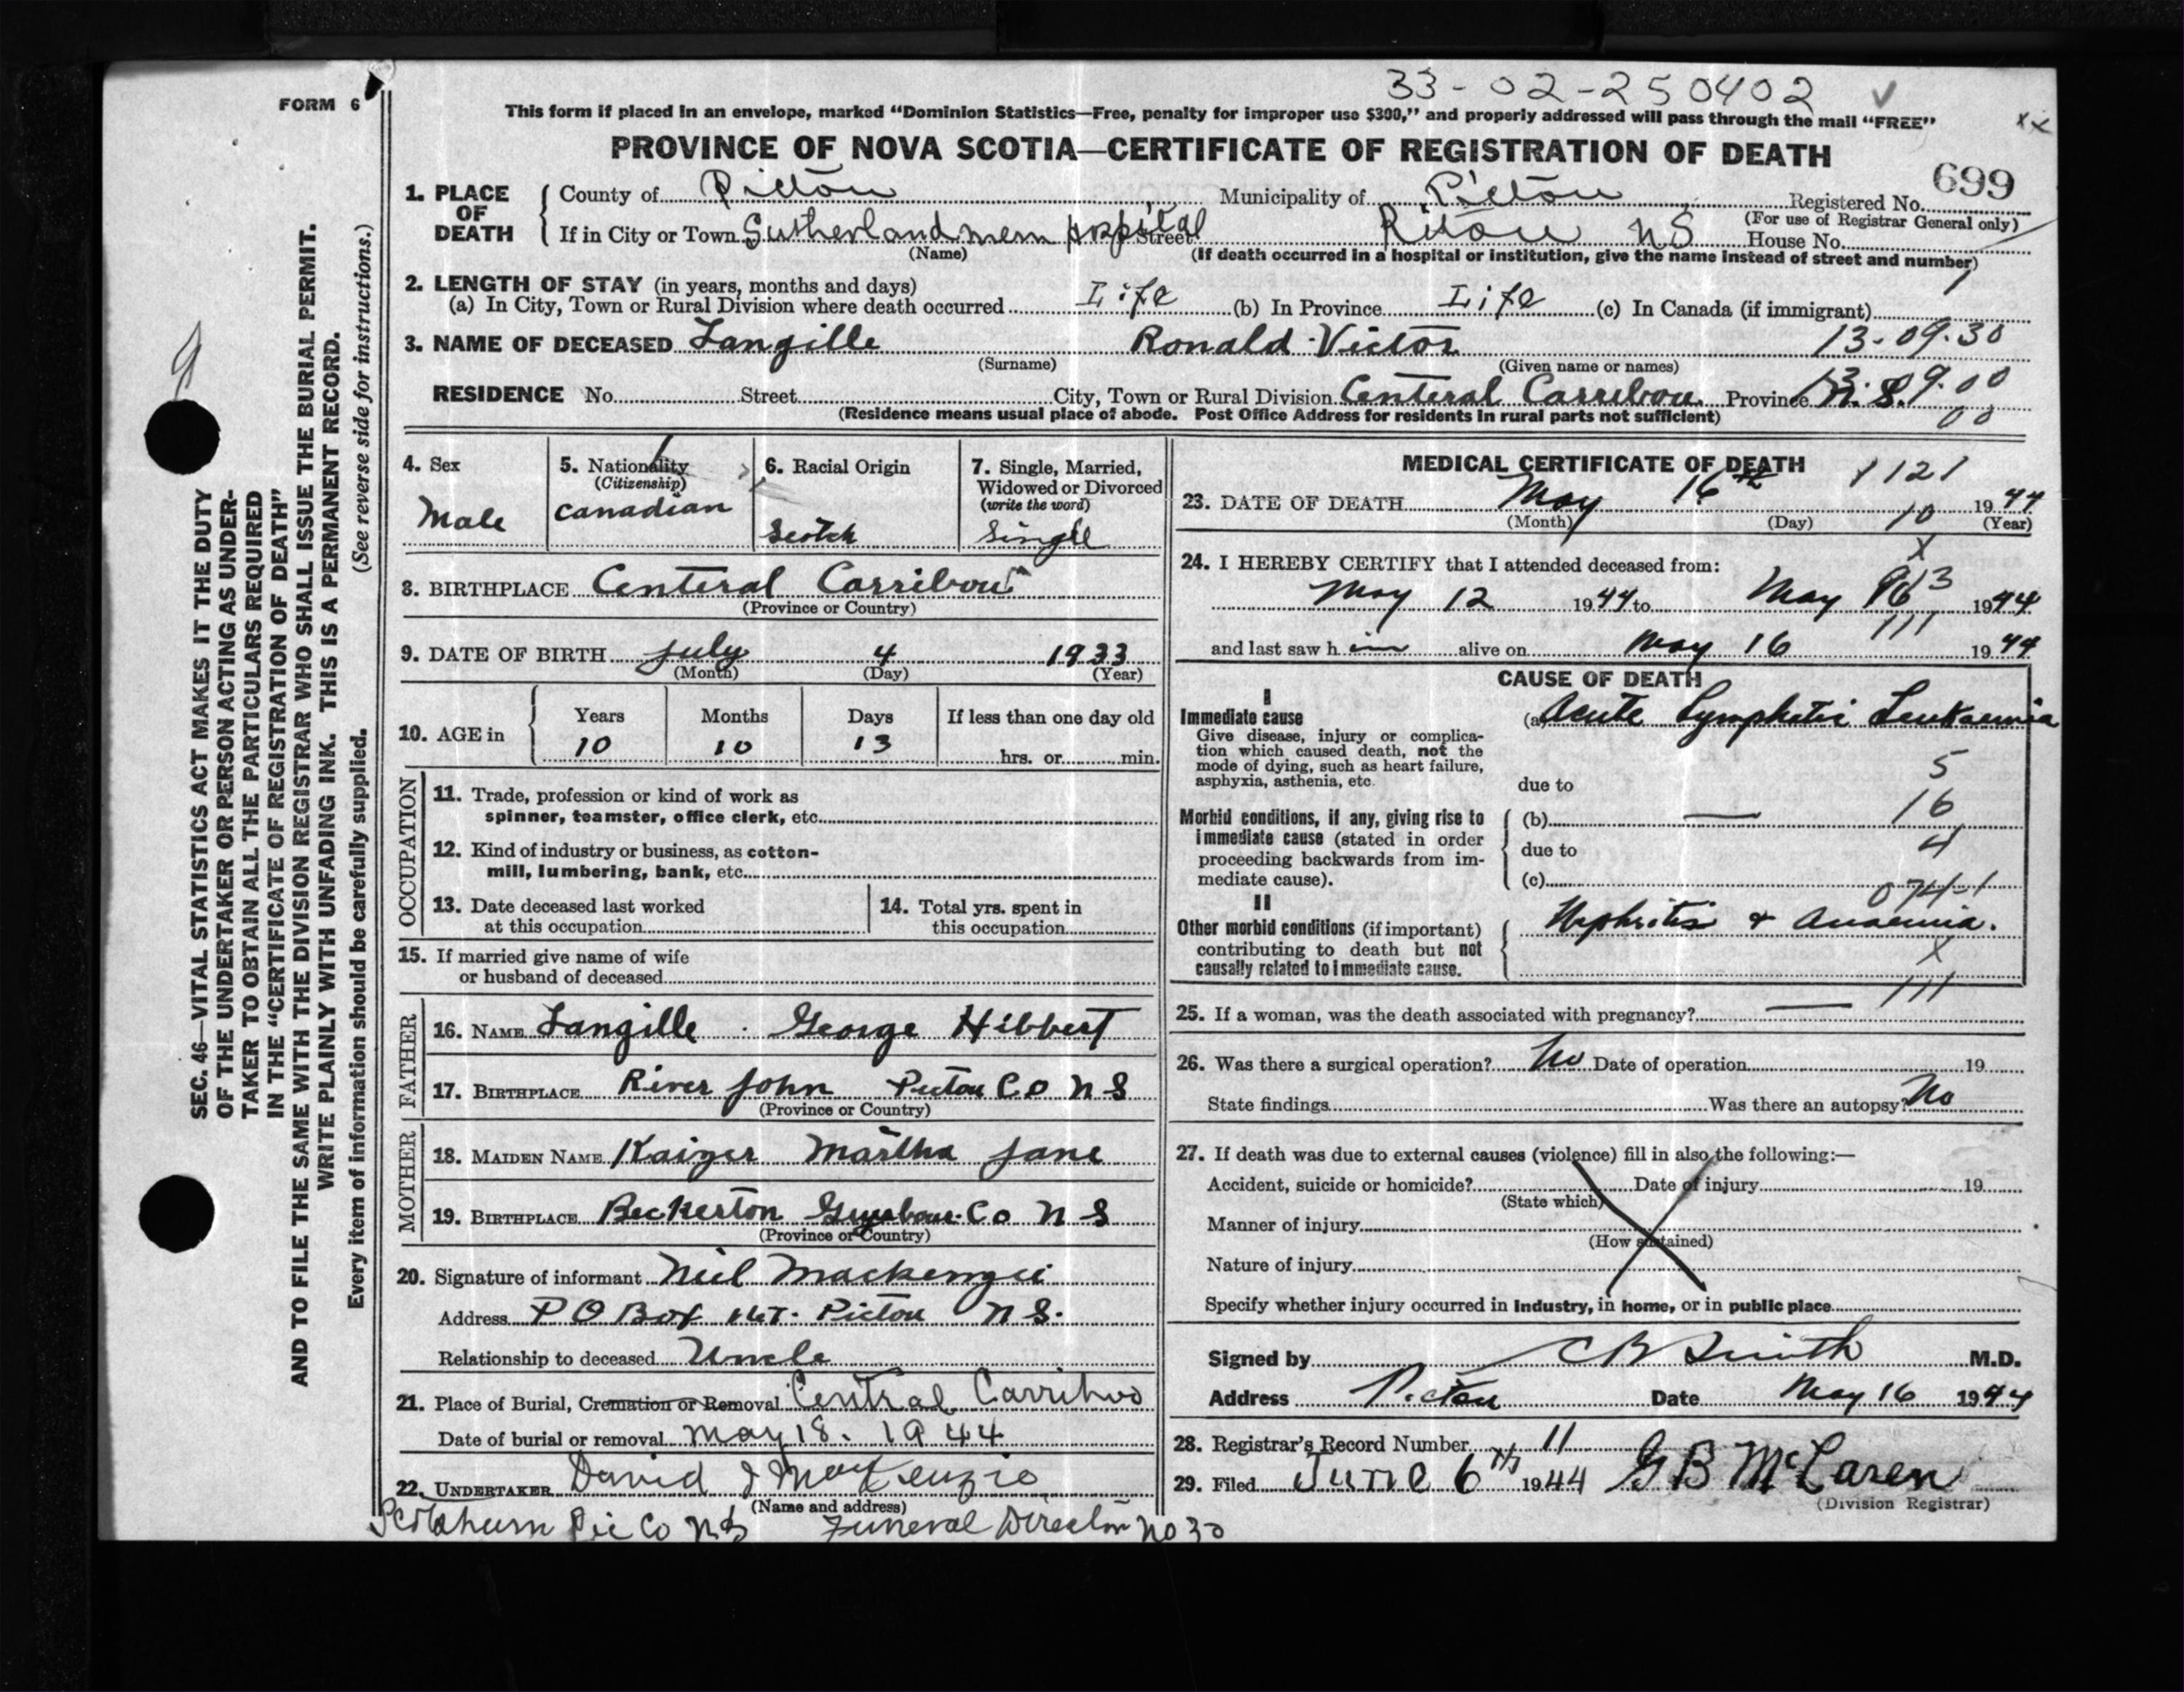 33-02-250402
FORM 6
This form if placed in an envelope, marked "Dominion Statistics—Free, penalty for improper use $300," and properly addressed will pass through the mail "FREE"
PROVINCE OF NOVA SCOTIA—CERTIFICATE OF REGISTRATION OF DEATH
699
1. PLACE OF DEATH County of Pictou Municipality of Pictou Registered No.
(For use of Registrar General only)
If in City or Town Sutherland mem Hospital Street Pictou NS House No.
(Name) (If death occurred in a hospital or institution, give the name instead of street and number)
2. LENGTH OF STAY (in years, months and days)
(a) In City, Town or Rural Division where death occurred Life (b) In Province Life (c) In Canada (if immigrant)
3. NAME OF DECEASED Langille Ronald Victor 13-09-30
(Surname) (Given name or names)
RESIDENCE No. Street City, Town or Rural Division Centeral Carribou Province N.S. 13.09.00
(Residence means usual place of abode. Post Office Address for residents in rural parts not sufficient) 00
4. Sex Male
5. Nationality (Citizenship) Canadian
6. Racial Origin Scotch
7. Single, Married, Widowed or Divorced (write the word) Single
8. BIRTHPLACE Centeral Carribou
(Province or Country)
9. DATE OF BIRTH July 4 1933
(Month) (Day) (Year)
10. AGE in Years Months Days If less than one day old
10 10 13 hrs. or min.
OCCUPATION
11. Trade, profession or kind of work as
spinner, teamster, office clerk, etc.
12. Kind of industry or business, as cotton-
mill, lumbering, bank, etc.
13. Date deceased last worked at this occupation
14. Total yrs. spent in this occupation
15. If married give name of wife
or husband of deceased
FATHER
16. NAME Langille George Hibbert
17. BIRTHPLACE River John Pictou Co N S
(Province or Country)
MOTHER
18. MAIDEN NAME Kaizer Martha Jane
19. BIRTHPLACE Beckerton Co N S
(Province or Country)
20. Signature of informant Neil Mackenzie
Address P O Box Pictou N S.
Relationship to deceased Uncle
21. Place of Burial, Cremation or Removal Central Carriboo
Date of burial or removal May 18. 1944
22. UNDERTAKER David J MacKenzie
(Name and address)
Scotsburn Pic Co NS Funeral Director No 30
MEDICAL CERTIFICATE OF DEATH 1121
23. DATE OF DEATH May 16th 10 1944
(Month) (Day) (Year)
24. I HEREBY CERTIFY that I attended deceased from:
May 12 1944 to May 16 1944
and last saw h im alive on May 16 1944
111
CAUSE OF DEATH
I
Immediate cause (a) Acute Lymphatic Leukaemia
Give disease, injury or complica-
tion which caused death, not the
mode of dying, such as heart failure,
asphyxia, asthenia, etc.
due to 5
Morbid conditions, if any, giving rise to (b) — 16
immediate cause (stated in order due to 4
proceeding backwards from im-
mediate cause). (c) 074-1
II
Other morbid conditions (if important) Nephritis & Anaemia.
contributing to death but not X
causally related to immediate cause.
111
25. If a woman, was the death associated with pregnancy? —
26. Was there a surgical operation? No Date of operation 19
State findings Was there an autopsy? No
27. If death was due to external causes (violence) fill in also the following:—
Accident, suicide or homicide? Date of injury 19
(State which)
Manner of injury
(How sustained)
Nature of injury
Specify whether injury occurred in industry, in home, or in public place
Signed by C B Smith M.D.
Address Pictou Date May 16 1944
28. Registrar's Record Number 11
29. Filed June 6th 1944 G B McLaren
(Division Registrar)
SEC. 46—VITAL STATISTICS ACT MAKES IT THE DUTY
OF THE UNDERTAKER OR PERSON ACTING AS UNDER-
TAKER TO OBTAIN ALL THE PARTICULARS REQUIRED
IN THE "CERTIFICATE OF REGISTRATION OF DEATH"
AND TO FILE THE SAME WITH THE DIVISION REGISTRAR WHO SHALL ISSUE THE BURIAL PERMIT.
WRITE PLAINLY WITH UNFADING INK. THIS IS A PERMANENT RECORD.
Every item of information should be carefully supplied. (See reverse side for instructions.)